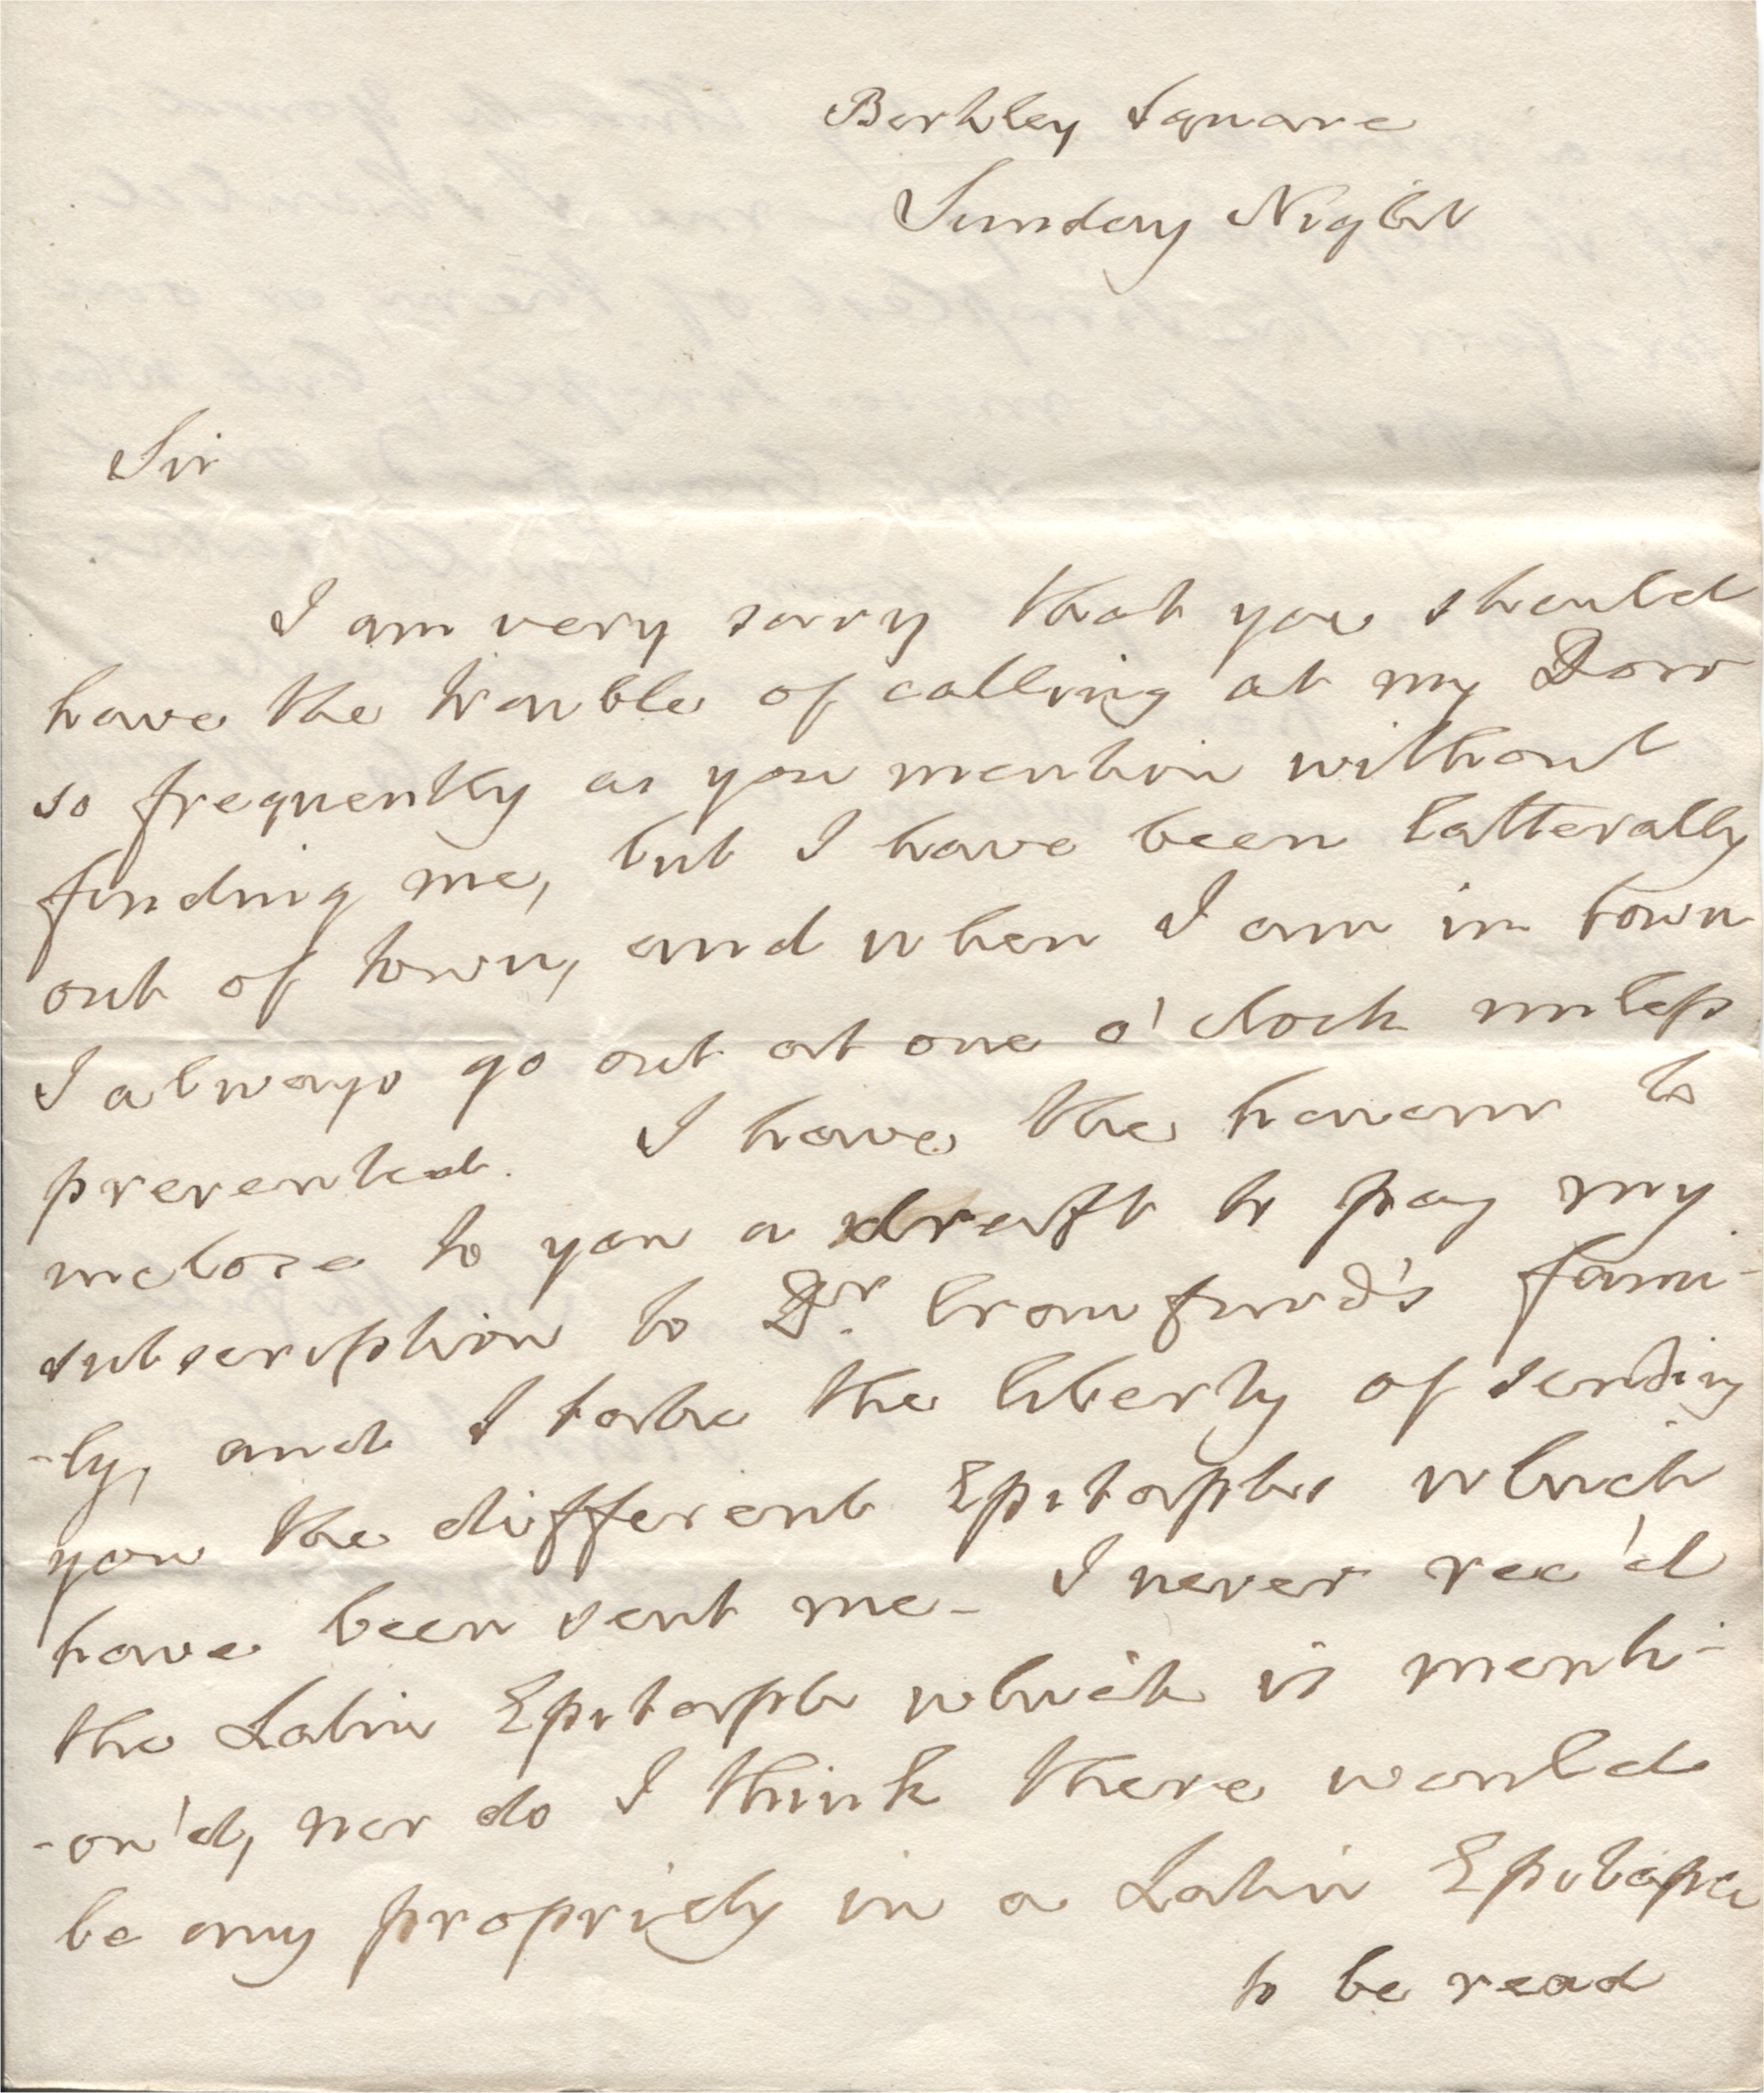 Berkley Square
Sunday Night
Sir
I am very sorry that you should
have the trouble of calling at my Door
so frequently as you mention without
finding me, but I have been latterally
out of town, and when I am in town
I always go out at one o'clock unless
prevented. I have the honour to
inclose to you a draft to pay my
subscription to Dr. Crawfurd's fami-
-ly, and I take the liberty of sending
you the different Epitaphs which
have been sent me - I never rec'd
the Latin Epitaph which is menti-
-on'd, nor do I think there would
be any propriety in a Latin Epitaph
to be read